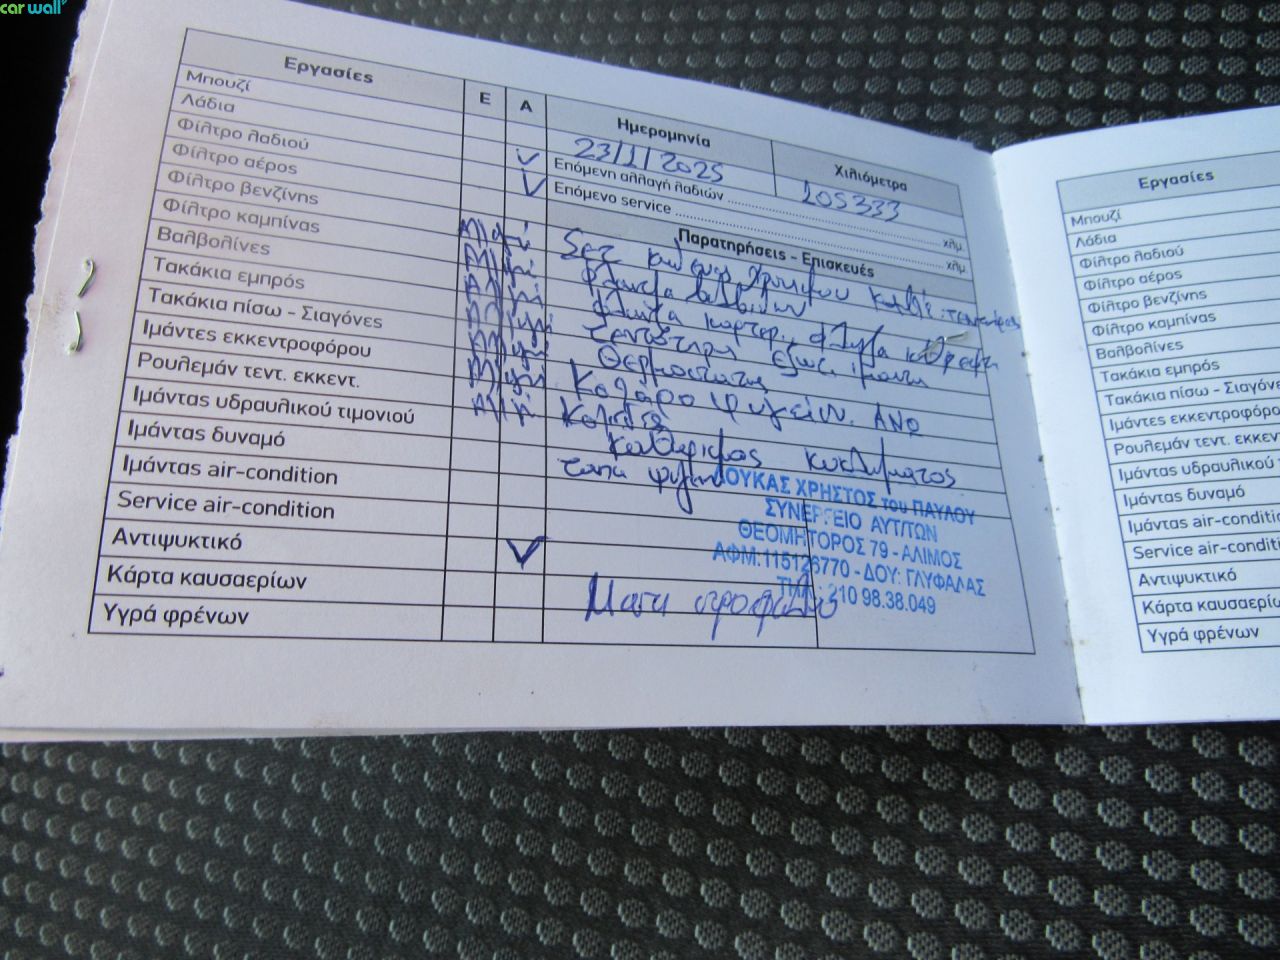 car wall
Εργασίες
Ε
Α
Ημερομηνία
Χιλιόμετρα
23/1/2025
105333
Επόμενη αλλαγή λαδιών ........ χλμ.
Επόμενο service ........ χλμ
Παρατηρήσεις - Επισκευές
Μπουζί
Λάδια
Φίλτρο λαδιού
Φίλτρο αέρος
Φίλτρο βενζίνης
Φίλτρο καμπίνας
Βαλβολίνες
Τακάκια εμπρός
Τακάκια πίσω - Σιαγόνες
Ιμάντες εκκεντροφόρου
Ρουλεμάν τεντ. εκκεντ.
Ιμάντας υδραυλικού τιμονιού
Ιμάντας δυναμό
Ιμάντας air-condition
Service air-condition
Αντιψυκτικό
Κάρτα καυσαερίων
Υγρά φρένων
Αλλαγή
Αλλαγή
Αλλαγή
Αλλαγή
Αλλαγή
Αλλαγή
Αλλαγή
Σετ
φλάντζα
φλάντζα καρτερ, φλάντζα
τεντωτήρας εξωτ. ιμάντα
Θερμοστάτης
Κολάρο ψυγείου ΑΝΩ
Καθαρισμός κυκλώματος
ταπα ψυγείου
ΛΟΥΚΑΣ ΧΡΗΣΤΟΣ του ΠΑΥΛΟΥ
ΣΥΝΕΡΓΕΙΟ ΑΥΤ/ΤΩΝ
ΘΕΟΜΗΤΟΡΟΣ 79 - ΑΛΙΜΟΣ
ΑΦΜ:115126770 - ΔΟΥ: ΓΛΥΦΑΔΑΣ
ΤΗΛ.: 210 98.38.049
Εργασίες
Μπουζί
Λάδια
Φίλτρο λαδιού
Φίλτρο αέρος
Φίλτρο βενζίνης
Φίλτρο καμπίνας
Βαλβολίνες
Τακάκια εμπρός
Τακάκια πίσω - Σιαγόνε
Ιμάντες εκκεντροφόρο
Ρουλεμάν τεντ. εκκεν
Ιμάντας υδραυλικού τι
Ιμάντας δυναμό
Ιμάντας air-conditio
Service air-conditi
Αντιψυκτικό
Κάρτα καυσαερίω
Υγρά φρένων